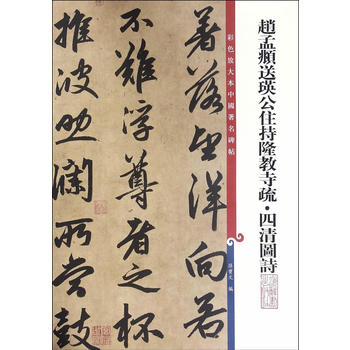 趙孟頫送瑛公住持隆教寺疏·四清圖詩
彩色放大本中國著名碑帖
孫寶文 編
著落望洋向若
不難浮尊者之杯
推波助瀾所嘗鼓